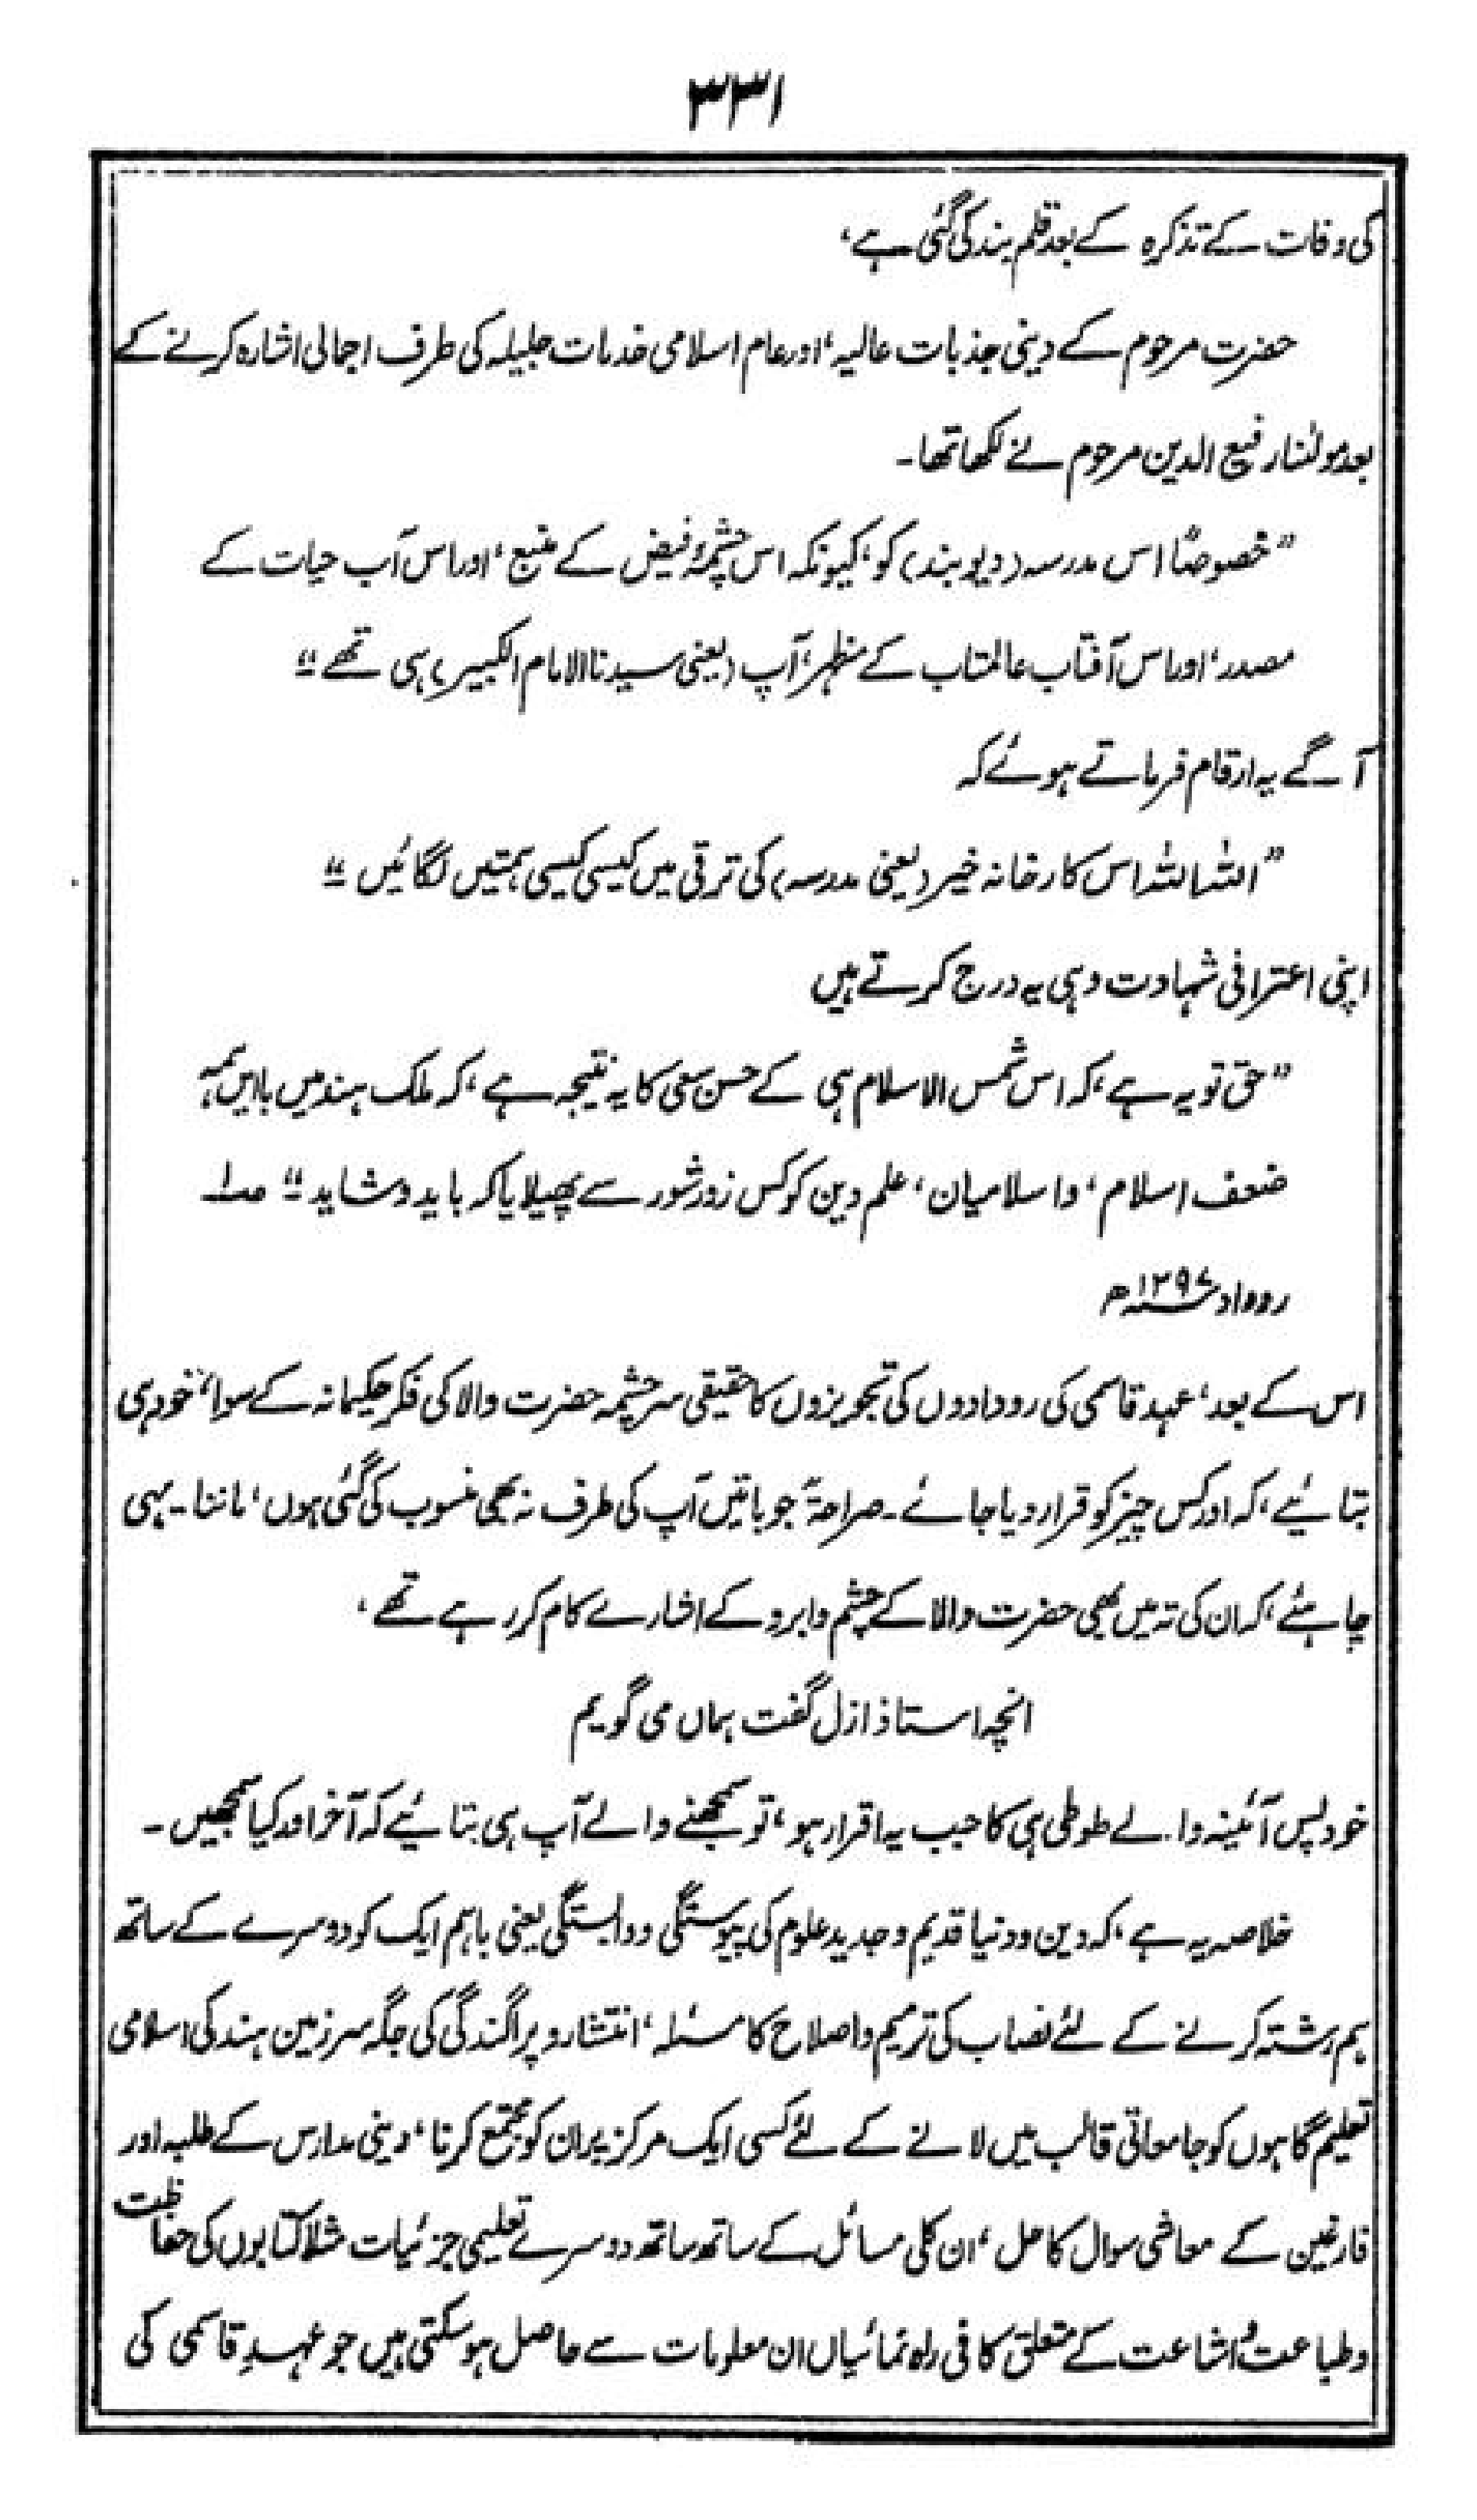 ۳۳۱
کی وفات کے تذکرہ کے بعد قلم بند کی گئی ہے،
حضرت مرحوم کے دینی جذبات عالیہ، اور عام اسلامی خدمات جلیلہ کی طرف اجمالی اشارہ کرنے کے
بعد مولٰنا رفیع الدین مرحوم نے لکھا تھا۔
"خصوصًا اس مدرسہ (دیوبند) کو، کیونکہ اس چشمۂ فیض کے منبع، اور اس آب حیات کے
مصدر، اور اس آفتاب عالمتاب کے مظہر، آپ (یعنی سیدنا الامام الکبیر) ہی تھے"
آگے یہ ارقام فرماتے ہوئے کہ
"اللہ اللہ اس کارخانہ خیر (یعنی مدرسہ) کی ترقی میں کیسی کیسی ہمتیں لگائیں"
اپنی اعترافی شہادت وہی یہ درج کرتے ہیں
"حق تو یہ ہے، کہ اس شمس الاسلام ہی کے حسن سعی کا یہ نتیجہ ہے، کہ ملک ہند میں باایں ہمہ
ضعف اسلام، و اسلامیان، علم دین کو کس زور شور سے پھیلایا کہ باید و شاید"
روداد ۱۲۹۷ھ
اس کے بعد، عہد قاسمی کی رودادوں کی تجویزوں کا حقیقی سرچشمہ حضرت والا کی فکر حکیمانہ کے سوا، خود ہی
بتائیے، کہ اور کس چیز کو قرار دیا جائے۔ صراحۃً جو باتیں آپ کی طرف نہ بھی منسوب کی گئی ہوں، ماننا۔ یہی
چاہئے، کہ ان کی تہ میں بھی حضرت والا کے چشم و ابرو کے اشارے کام کر رہے تھے،
انچہ استاذ ازل گفت ہماں می گویم
خود پس آئینہ والے طوطی ہی کا جب یہ اقرار ہو، تو سمجھنے والے آپ ہی بتائیے کہ آخر اور کیا سمجھیں۔
خلاصہ یہ ہے، کہ دین و دنیا قدیم و جدید علوم کی پیوستگی و وابستگی یعنی باہم ایک کو دوسرے کے ساتھ
ہم رشتہ کرنے کے لئے نصاب کی ترمیم و اصلاح کا مسئلہ، انتشار و پراگندگی کی جگہ سرزمین ہند کی اسلامی
تعلیم گاہوں کو جامعاتی قالب میں لانے کے لئے کسی ایک مرکز پر ان کو مجتمع کرنا، دینی مدارس کے طلبہ اور
فارغین کے معاشی سوال کا حل، ان کلی مسائل کے ساتھ ساتھ دوسرے تعلیمی جزئیات مثلاً کتابوں کی حفاظت
و طباعت و اشاعت کے متعلق کافی راہ نمائیاں ان معلومات سے حاصل ہو سکتی ہیں جو عہدِ قاسمی کی